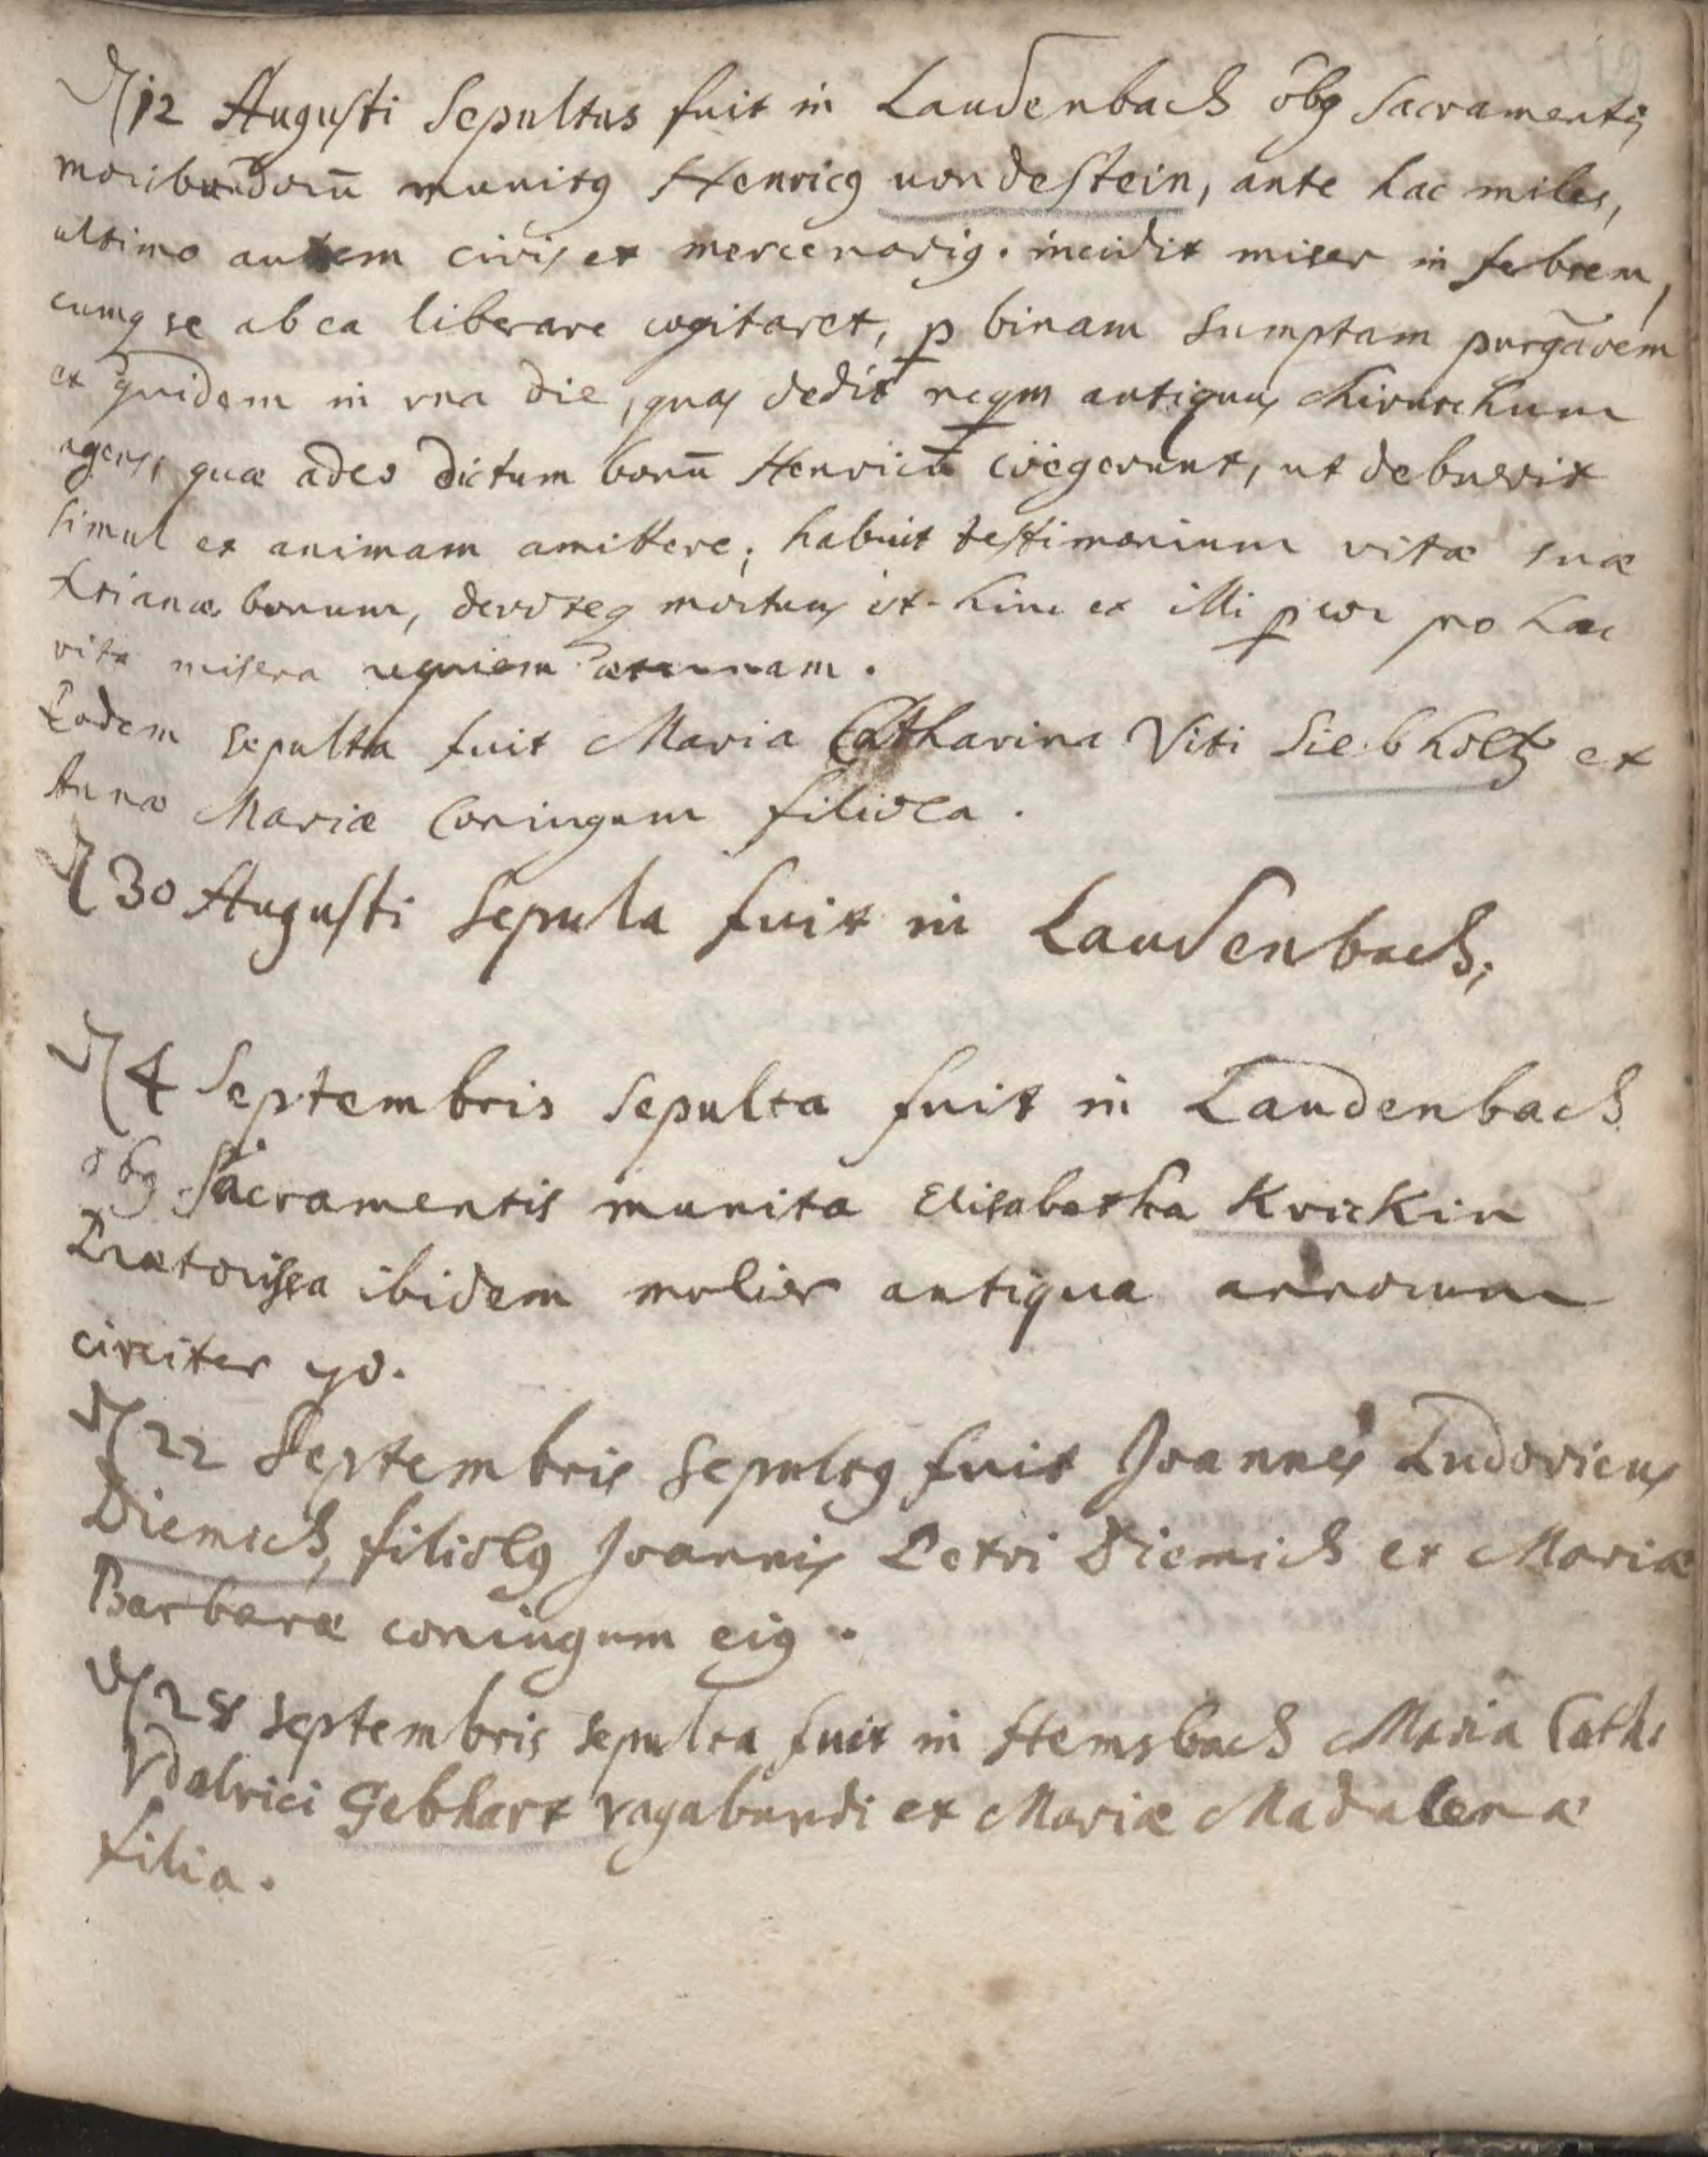 12 Augusti Sepultus fuit in Laudenbach õbg Sacramentis
moribundorū munitg Henricg von deStein, ante hac miles,
ultimo autem civis et mercenarig. incidit miser in febrem,
cumq se ab ea liberare cogitaret, p binam sumptam purgāōem
et quidem in vna die, quas dedit neqm antiquus chirurchum
agens, quæ adeo dictum bonū Henricū coëgerunt, ut debuerit
simul et animam amittere; habuit testimonium vitæ suæ
Xrianæ bonum, devoteq mortuus est. hinc et illi pcor pro hac
vita misera requiem æternam.
Eodem sepulta fuit Maria Catharina Viti Siebholtz et
Annæ Mariæ Coniugum filiola.
30 Augusti Sepula fuit in Laudenbach;
4 Septembris Sepulta fuit in Laudenbach
õbg Sacramentis munita Elisabetha Krickin
Prætorissa ibidem molier antiqua annorum
circiter 70.
22 Septembris Sepultg fuit Joannes Ludovicus
Diemich, filiolg Joannis Petri Diemich et Mariæ
Barbaræ coniugum eig.
28 Septembris Sepulta fuit in Hemsbach Maria Cath:
Vdalrici Gebhart vagabundi et Mariæ Madalenæ
filia.